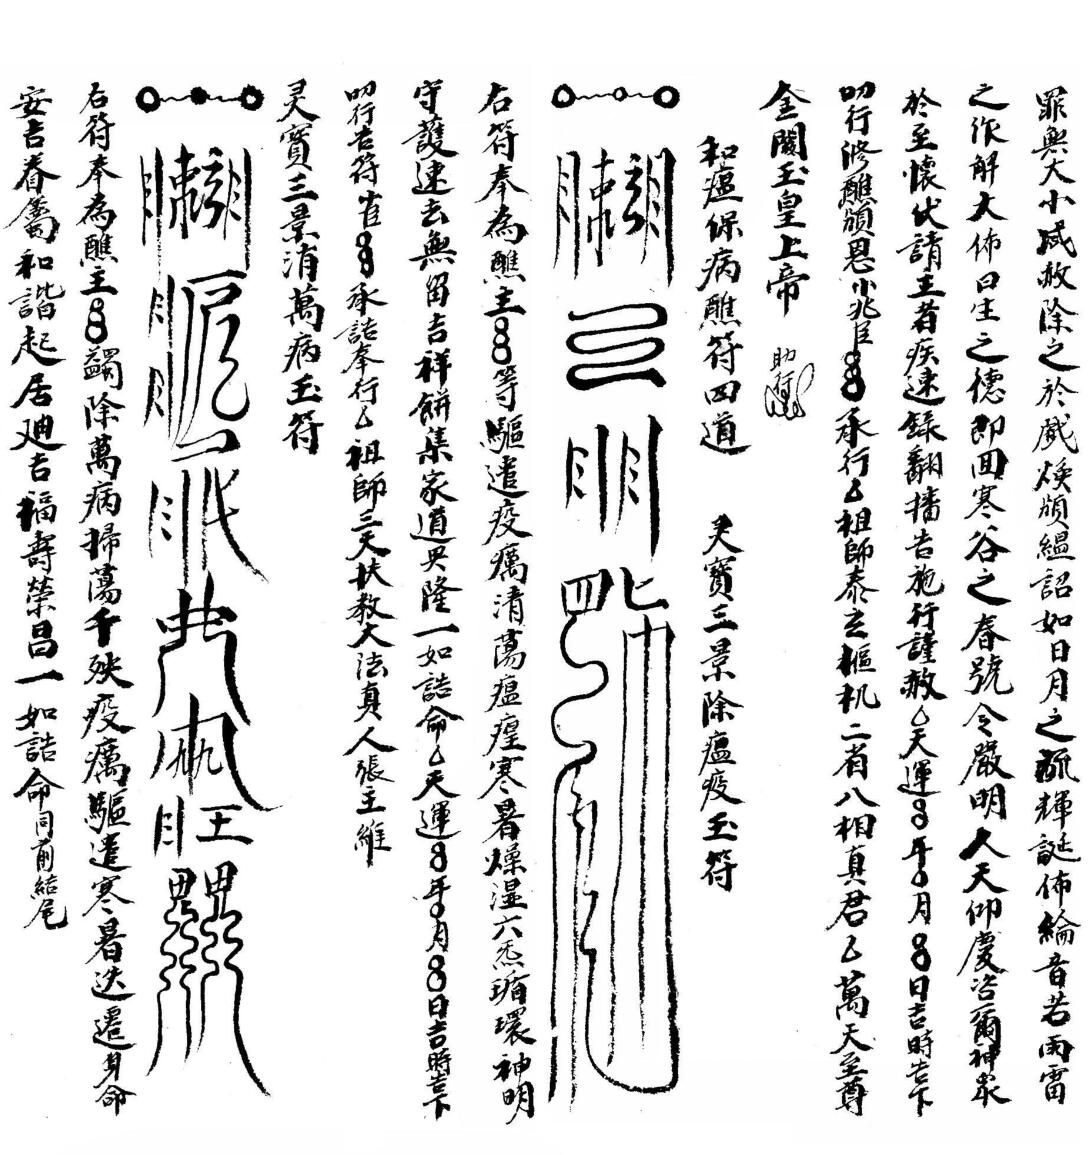 罪無大小咸赦除之於戲煥頒縕詔如日月之疏輝誕佈綸音若雨雷
之作解大佈曰生之德即回寒谷之春號令嚴明人天仰慶咨爾神衆
於至懷伏請主者疾速錄翻播告施行謹赦
天運 年 月 日吉時告下
叨行修醮頒恩小兆臣 承行
祖師泰玄樞机二省八相真君
萬天至尊
金闕玉皇上帝
和瘟保病醮符四道
灵寶三景除瘟疫玉符
右符奉為醮主 等驅遣疫癘清蕩瘟瘟寒暑燥湿六炁循環神明
守護速去無留吉祥餅集家道興隆一如誥命
天運 年 月 日吉時告下
叨行告符雀 承誥奉行
祖師三天扶教大法真人張主維
灵寶三景消萬病玉符
右符奉為醮主 蠲除萬病掃蕩千殃疫癘驅遣寒暑迭遷身命
安吉眷屬和諧起居迪吉福壽榮昌一如誥命同前結尾